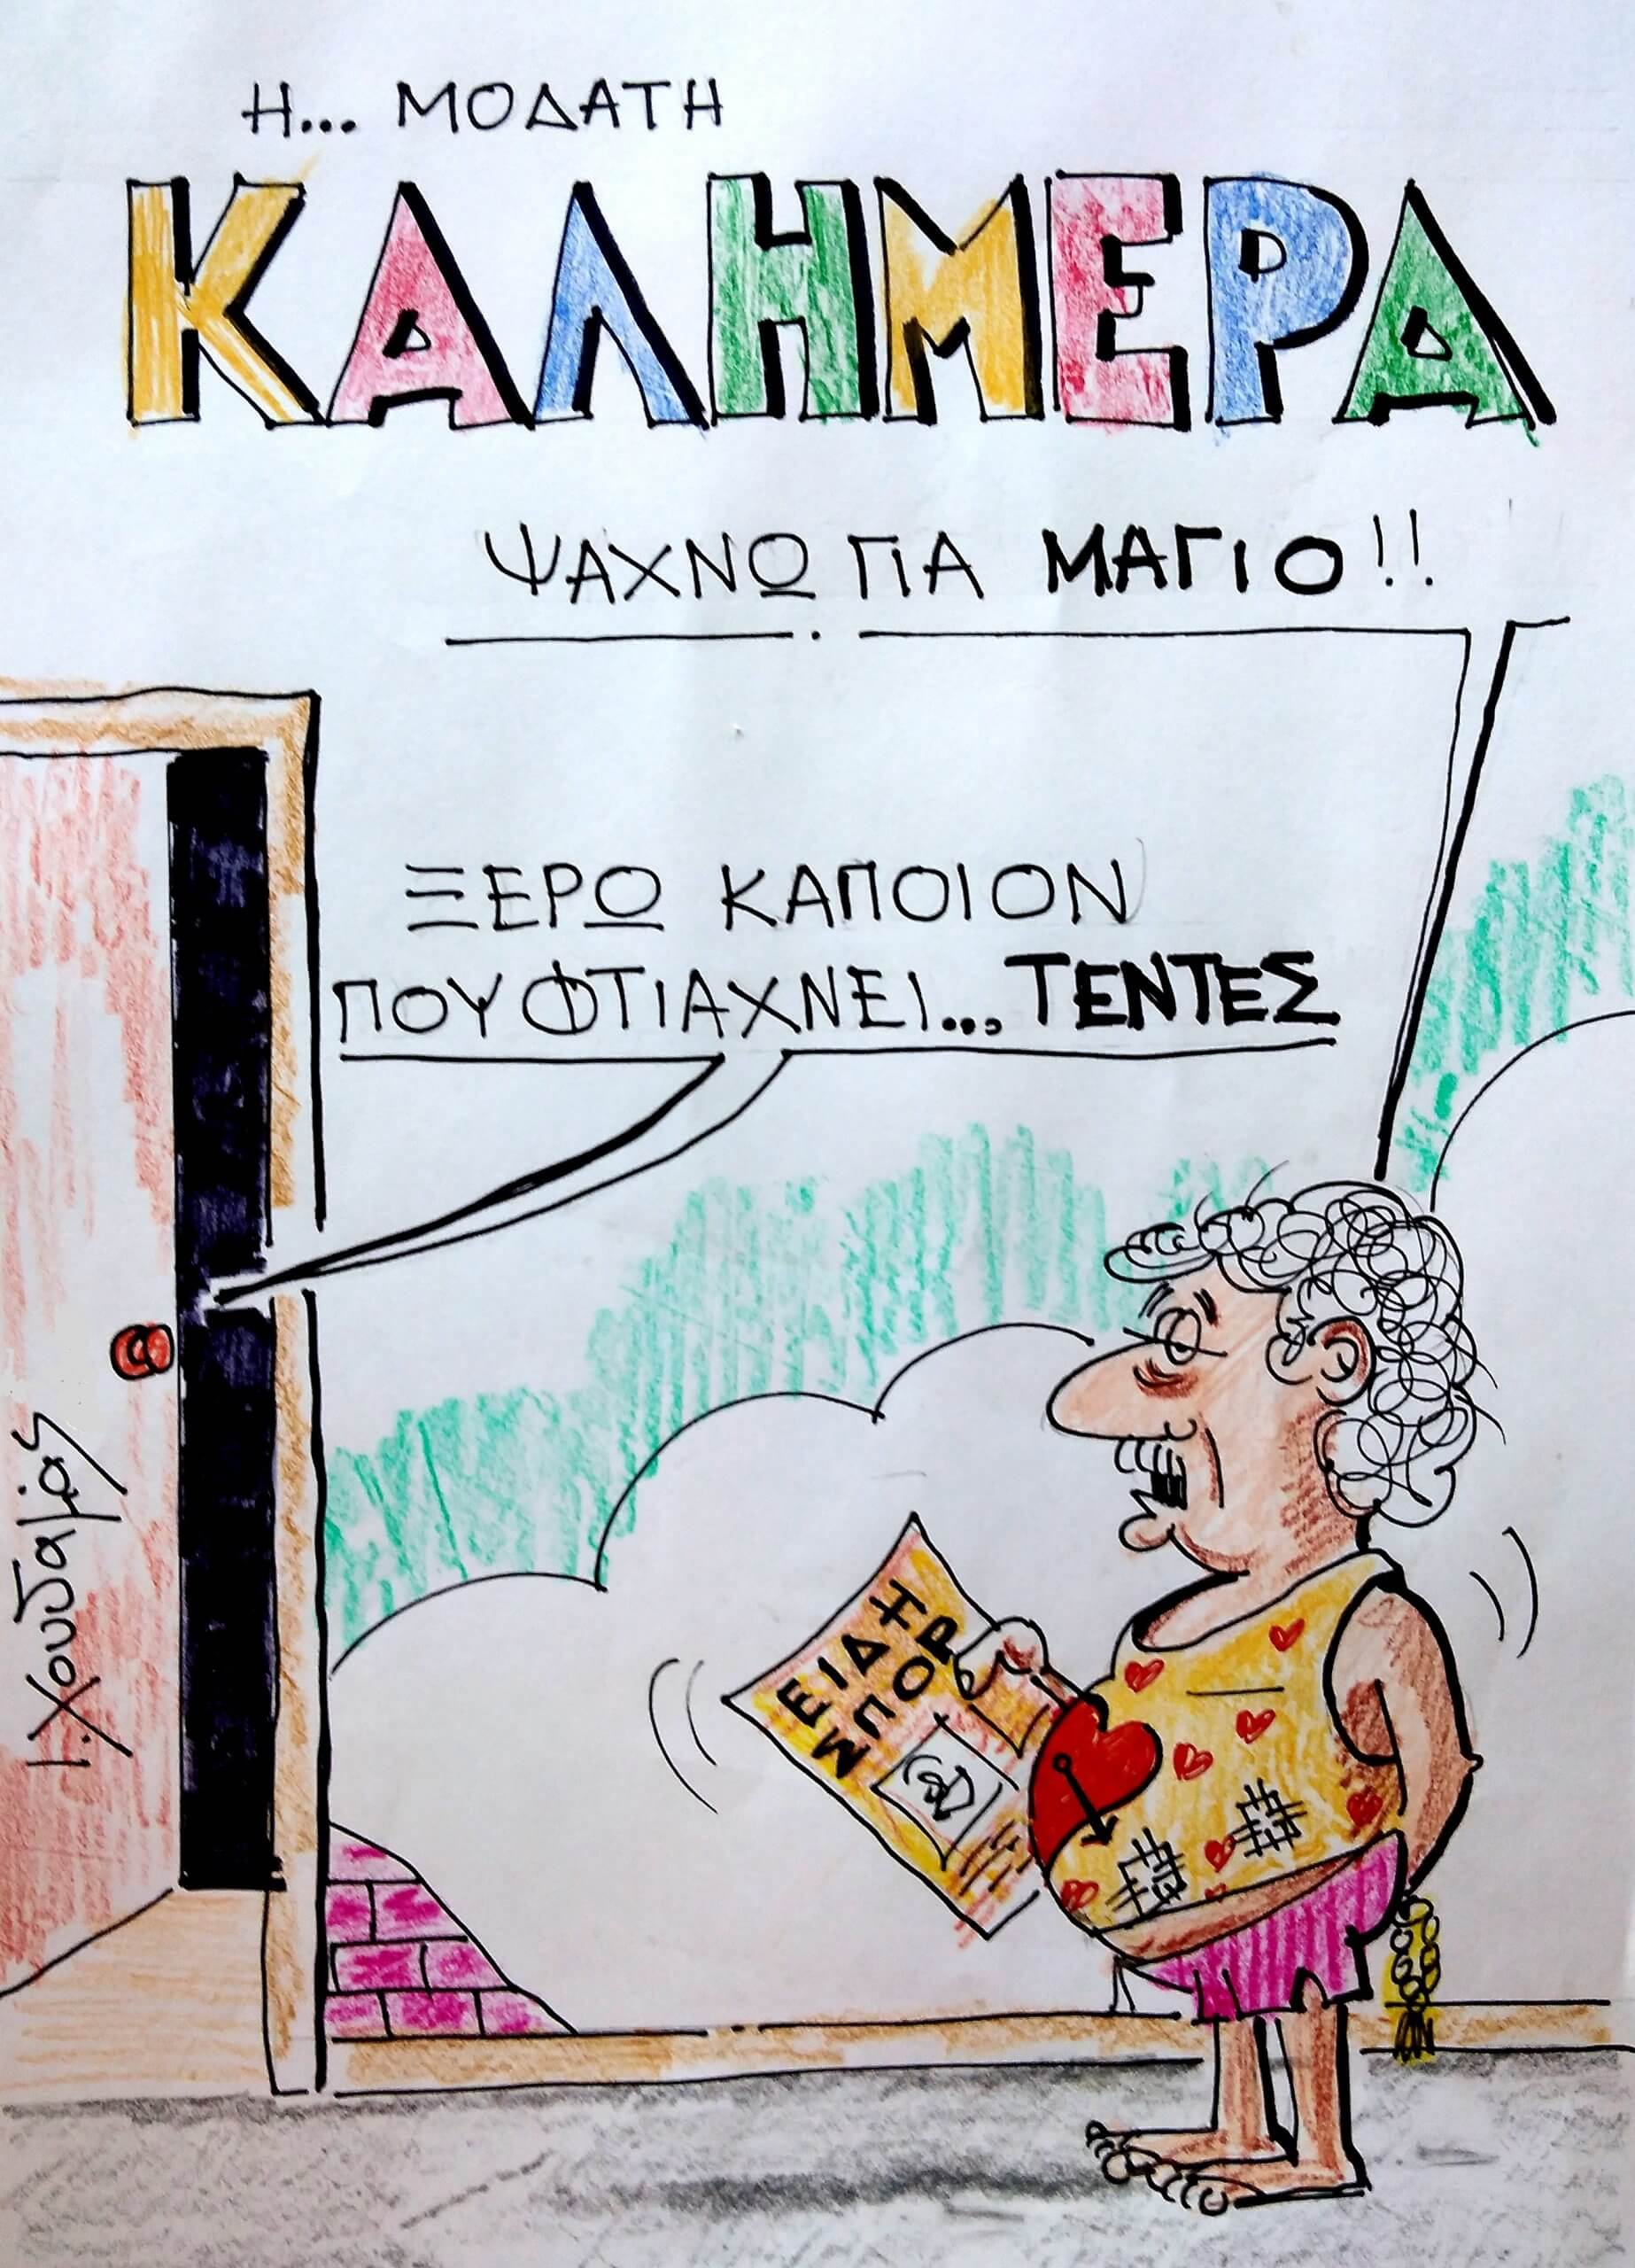 Η... ΜΟΔΑΤΗ
ΚΑΛΗΜΕΡΑ
ΨΑΧΝΩ ΓΙΑ ΜΑΓΙΟ!!
ΞΕΡΩ ΚΑΠΟΙΟΝ
ΠΟΥ ΦΤΙΑΧΝΕΙ... ΤΕΝΤΕΣ
ΕΙΔΗ
ΣΠΟΡ
Ι. Χουδαμιάς